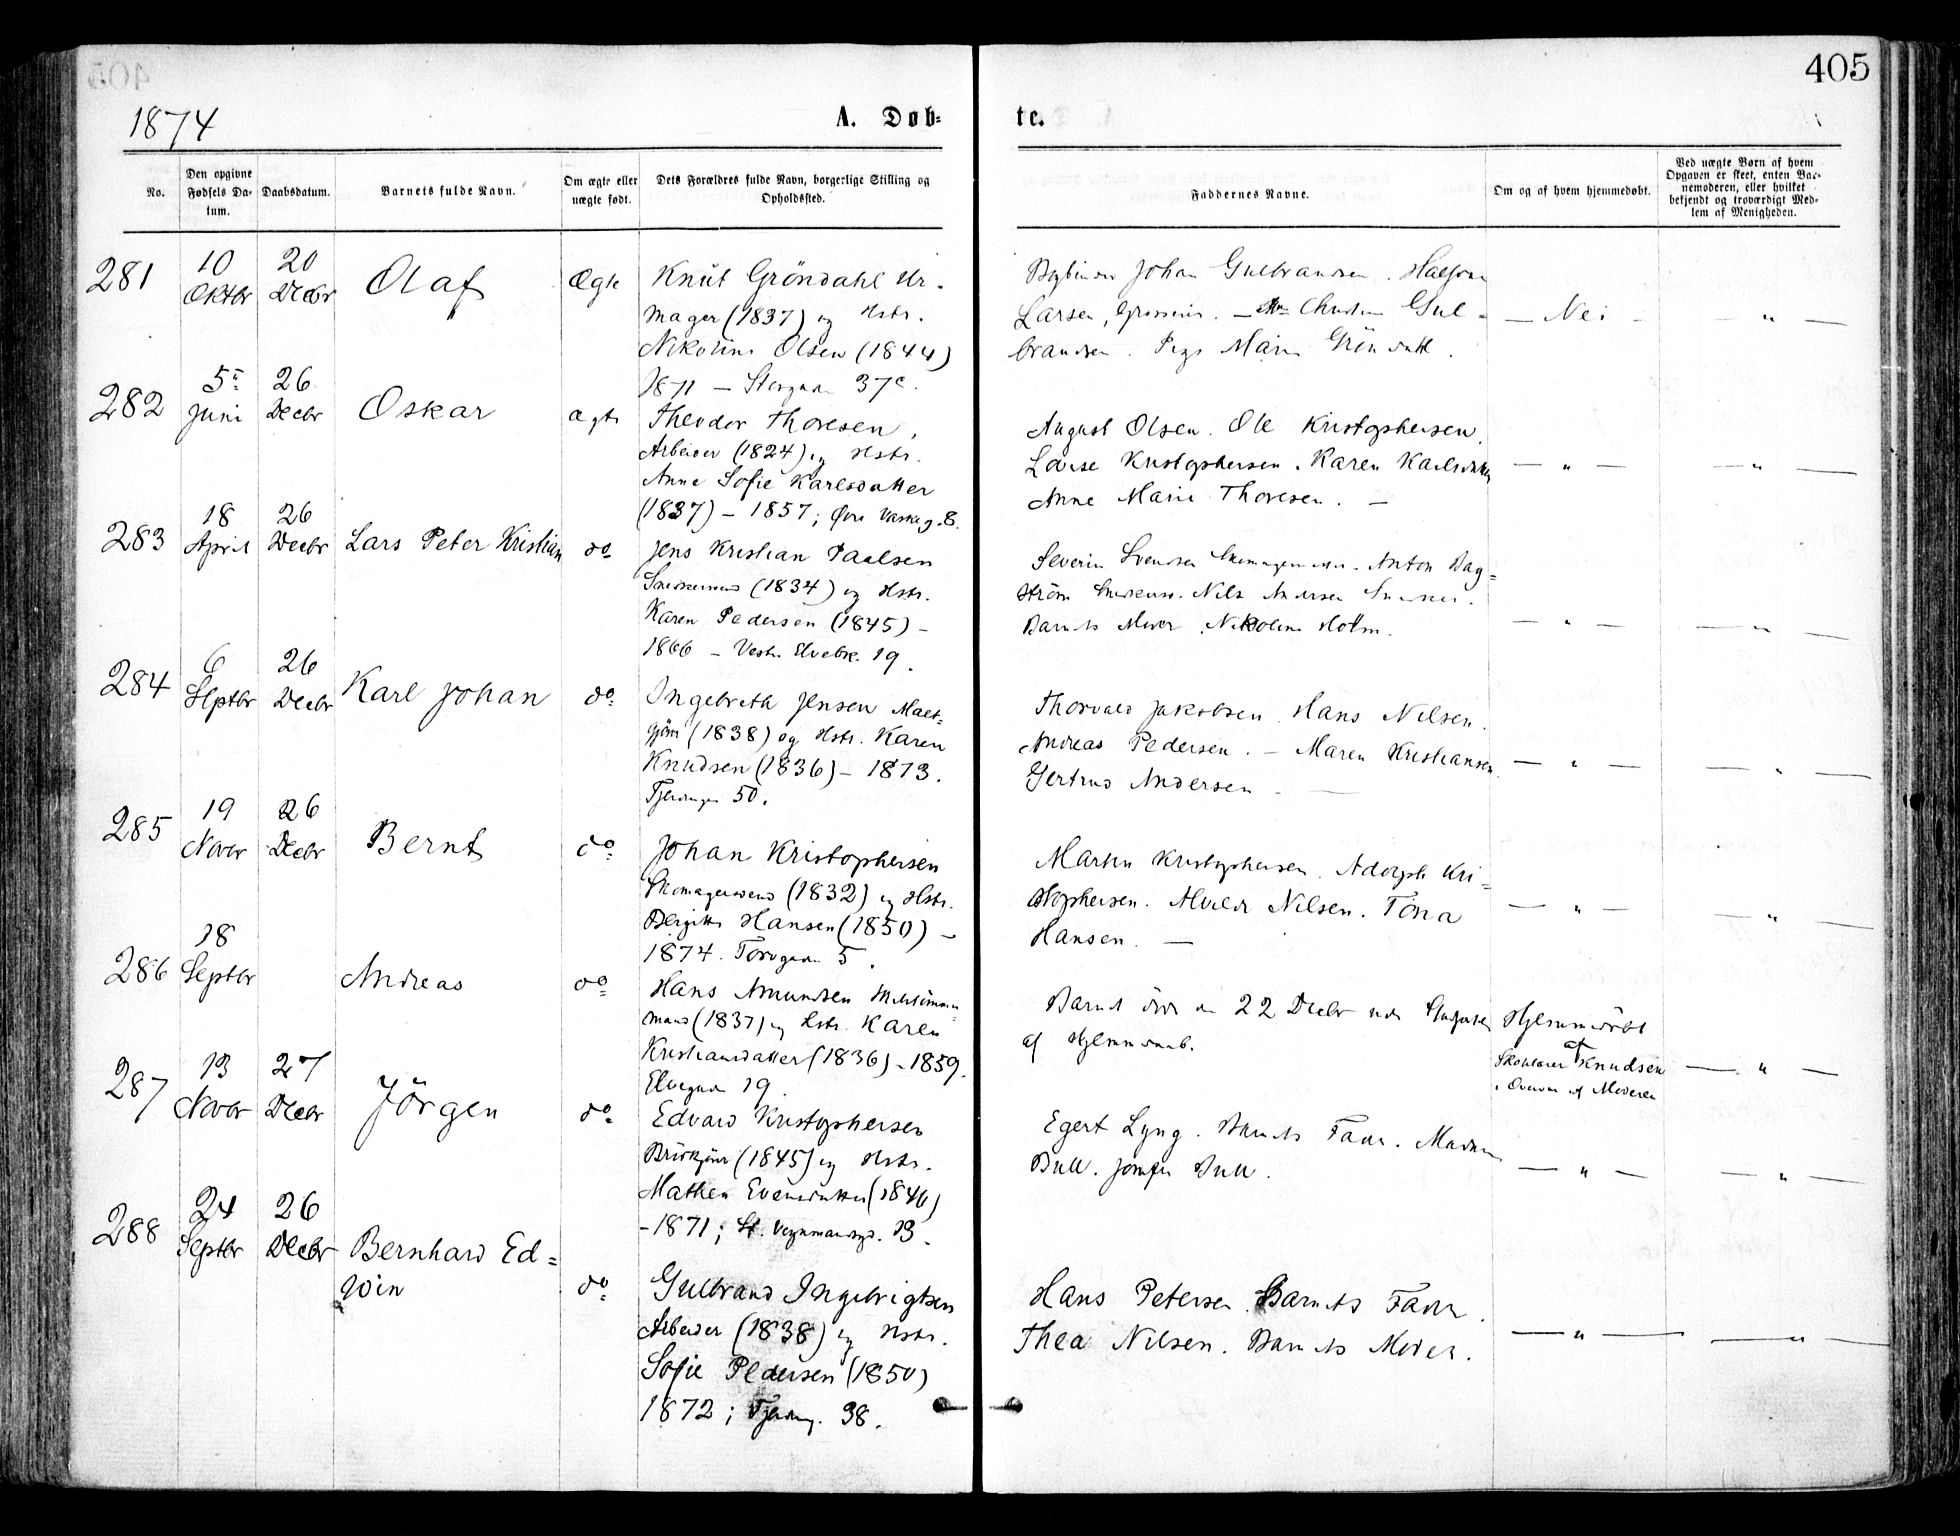 405
1874
A. Døb-
te.
No.
Den opgivne Fødsels Da-tum.
Daabsdatum.
Barnets fulde Navn.
Om ægte eller uægte født.
Dets Forældres fulde Navn, borgerlige Stilling og Opholdssted.
Faddernes Navne.
Om og af hvem hjemmedøbt.
Ved uægte Børn af hvem Opgaven er skeet, enten Bar-nemoderen, eller hvilket bekjendt og troværdigt Med-lem af Menigheden.
281 10 Oktbr 20 Decbr Olaf Ægte
Knut Gröndahl Ur-
mager (1837) og Hstr.
Nikoline Olsen (1844)
1871 — Storgaden 37c.
Johan Gulbrandsen. Halfvor
Larsen, — Christine Gul-
brandsen. Pige Marie Gröndahl.
— Nei — — „ —
282 5te Juni 26 Decbr Oskar ægte
Theodor Thoresen,
Arbeider (1824) og Hstr.
Anne Sofie Karlsdatter
(1837) — 1857; Øvre Vaskeg. 8.
August Olsen. Ole Kristophersen.
Lovise Kristophersen. Karen Karlsdatter
Anne Marie Thoresen. —
— „ — — „ —
283 18 April 26 Decbr Lars Peter Kristian do
Jens Kristian Paulsen
Snedkersvend (1834) og Hstr.
Karen Pedersen (1845) —
1866 — Vestr. Elvebk. 19.
Severin Svendsen Skomagermester. Anton Dag-
ström Snedkersv. Nils Andersen Snedker.
Barnets Moder. Nikoline Holm.
— „ — — „ —
284 6 Septbr 26 Decbr Karl Johan do
Ingebreth Jensen Malt-
gjører (1838) og Hstr. Karen
Knudsen (1836) — 1873.
Fjerdingen 50.
Thorvald Jakobsen. Hans Nilsen.
Andreas Pedersen. — Maren Kristiansen.
Gertrud Andersen —
— „ — — „ —
285 19 Novbr 26 Decbr Bernt do
Johan Kristophersen
Skomagersvend (1832) og Hstr.
Bergitte Hansen (1850) —
1874. Torvgaden 5.
Martin Kristophersen. Adolph Kri-
stophersen. Alvilde Nilsen. Tona
Hansen. —
— „ — — „ —
286 18 Septbr Andreas do
Hans Amundsen
mand (1837) og Hstr. Karen
Kristiansdatter (1836) — 1859.
Elvegaden 19.
Barnet döde den 22 Decbr uden Stadfæstelse
af Hjemmedaab.
Hjemmedöbt
af
Skolelærer Knudsen
i Overvær af Moderen
— „ —
287 13 Novbr 27 Decbr Jörgen do
Edvard Kristophersen
(1845) og Hstr.
Mathea Evensdatter (1846)
— 1871; St. Vognmandsgd. 13.
Egert Lyng. Barnets Fader.
Bull. Jomfru Bull.
— „ — — „ —
288 24 Septbr 26 Decbr Bernhard Ed-
win do
Gulbrand Ingebrigtsen
Arbeider (1838) og Hstr.
Sofie Pedersen (1850)
1872; Fjerding. 38.
Hans Petersen. Barnets Fader.
Thea Nilsen. Barnets Moder.
— „ — — „ —